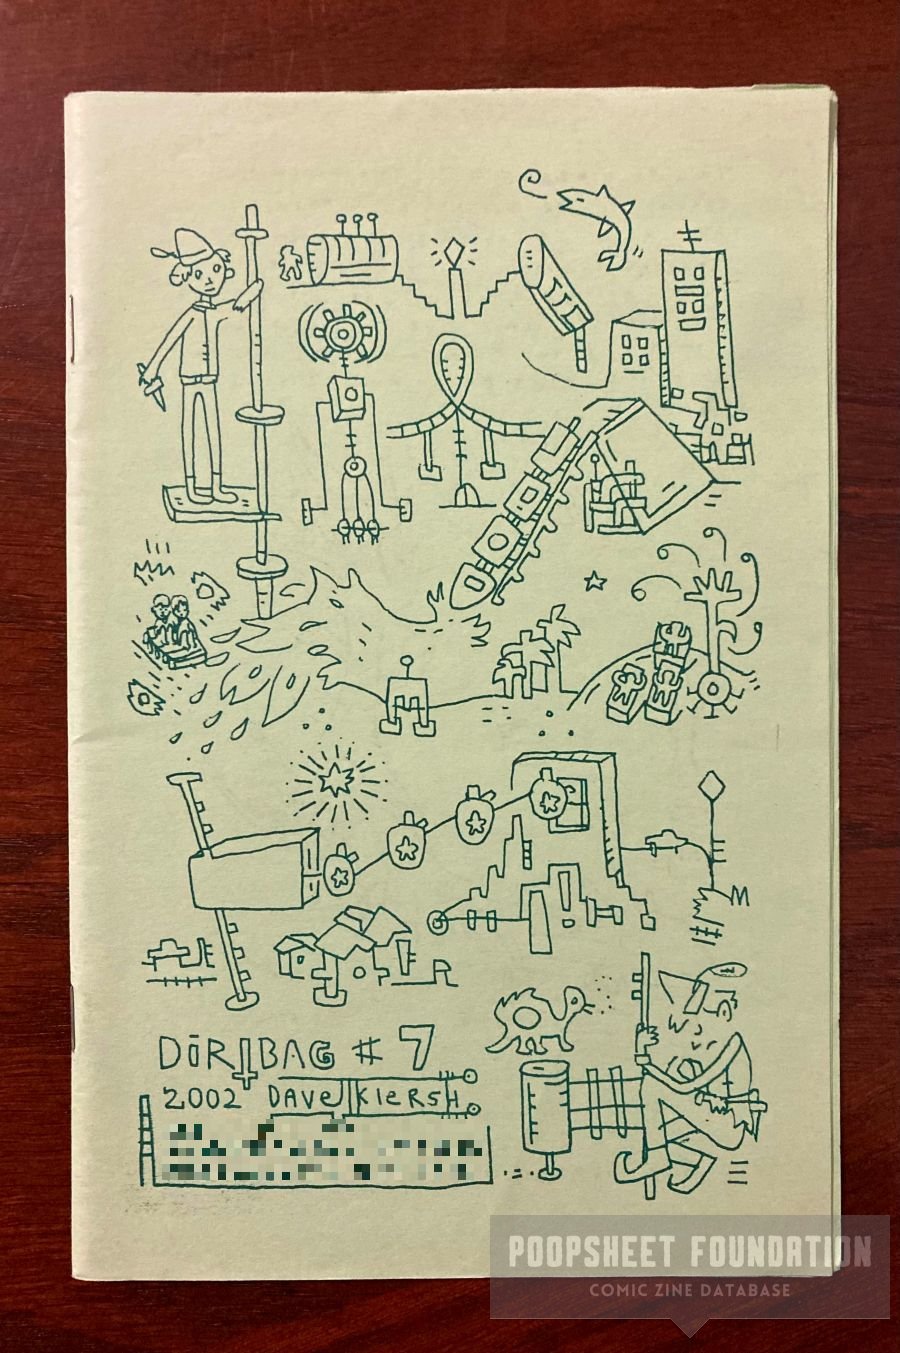 DiRTBAG # 7
2002 DAVe KIeRSH
POOPSHEET FOUNDATION
COMIC ZINE DATABASE